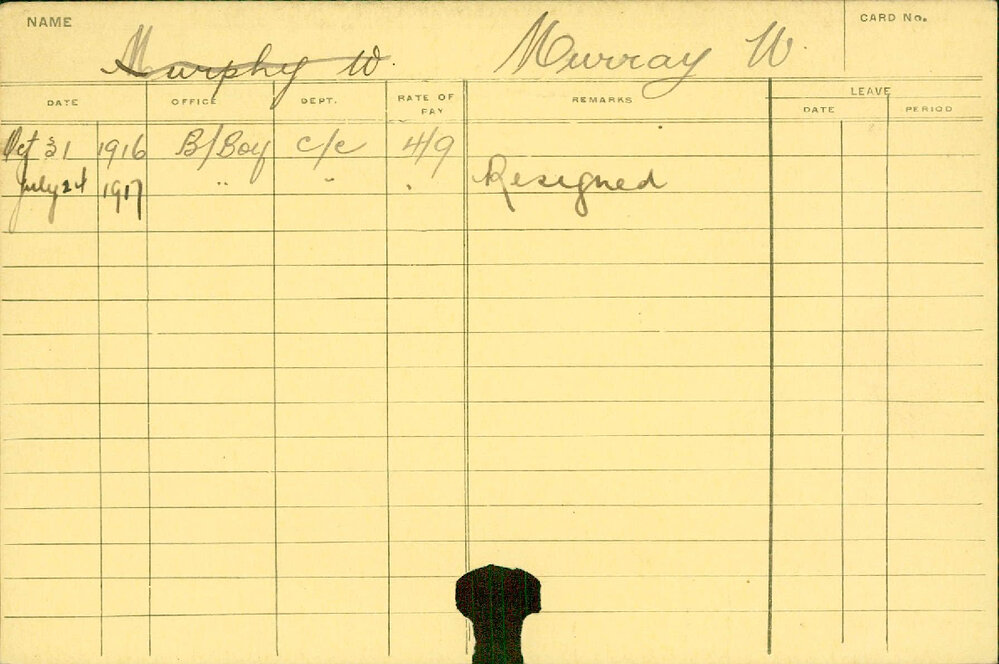 NAME
CARD No.
Murphy W. Murray W.
DATE OFFICE DEPT. RATE OF PAY REMARKS LEAVE
DATE PERIOD
Oct 31 1916 B/Boy c/c 4/9
July 24 1917 " " " Resigned